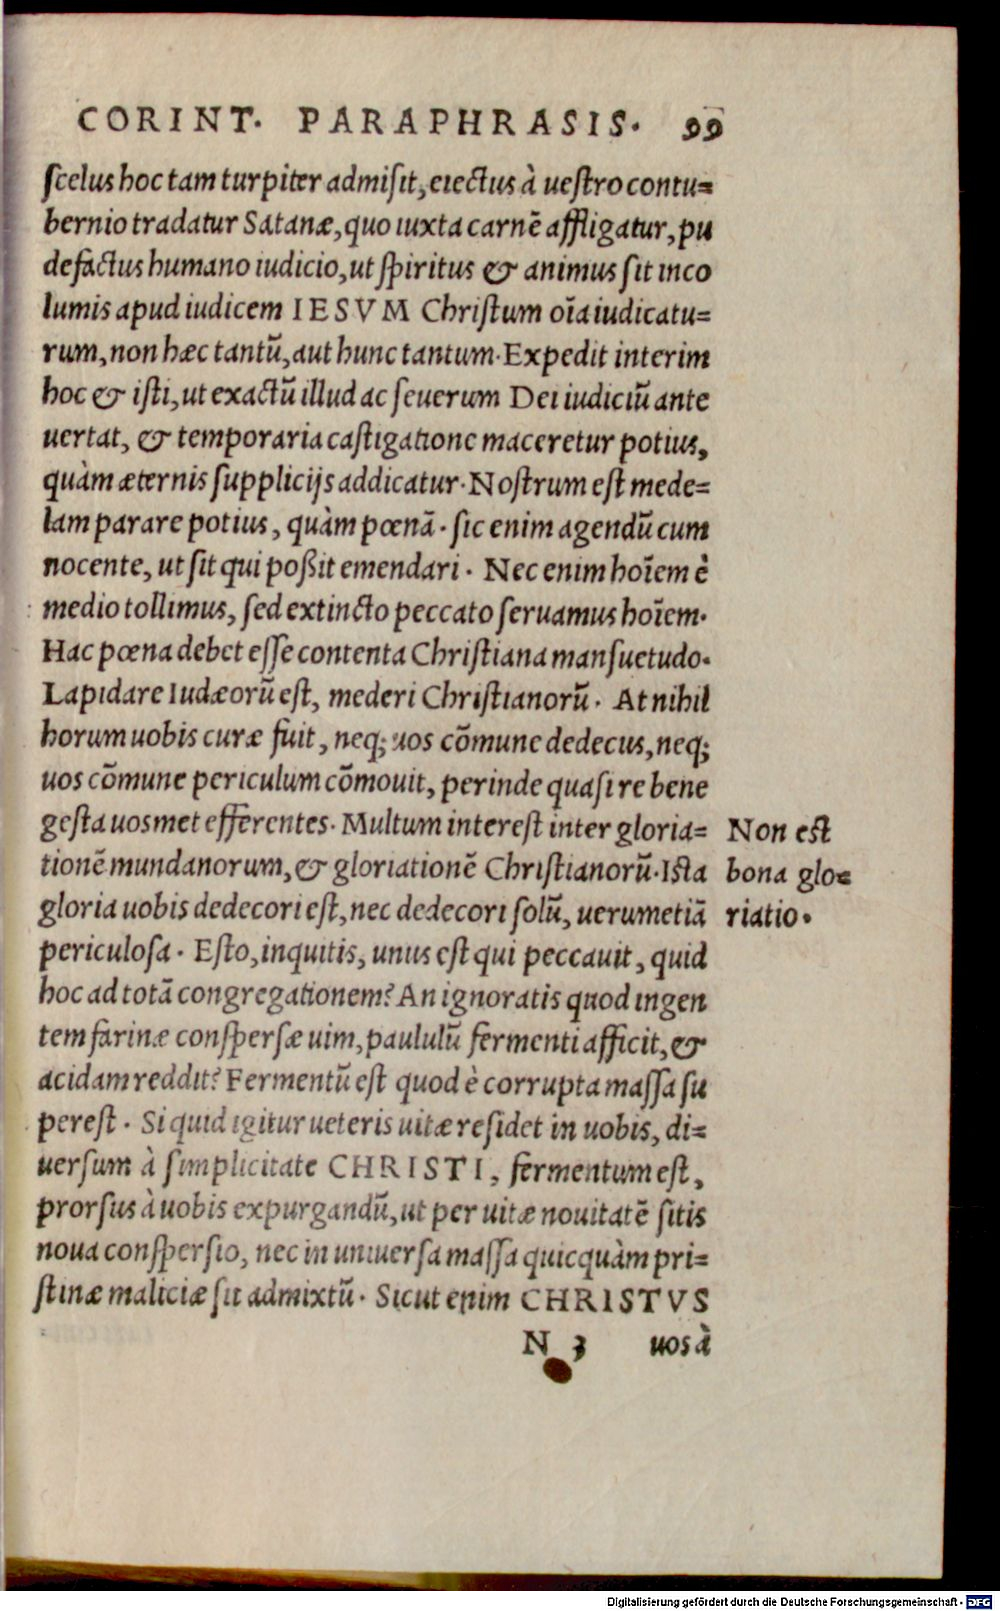 CORINT. PARAPHRASIS. 99
scelus hoc tam turpiter admisit, eiectus à uestro contu=
bernio tradatur Satanæ, quo iuxta carnẽ affligatur, pu
defactus humano iudicio, ut spiritus & animus sit inco
lumis apud iudicem IESVM Christum oĩa iudicatu=
rum, non hæc tantũ, aut hunc tantum. Expedit interim
hoc & isti, ut exactũ illud ac seuerum Dei iudiciũ ante
uertat, & temporaria castigatione maceretur potius,
quàm æternis supplicijs addicatur. Nostrum est mede=
lam parare potius, quàm pœnã. sic enim agendũ cum
nocente, ut sit qui poßit emendari. Nec enim hoĩem è
medio tollimus, sed extincto peccato seruamus hoĩem.
Hac pœna debet esse contenta Christiana mansuetudo.
Lapidare Iudæorũ est, mederi Christianorũ. At nihil
horum uobis curæ fuit, neq; uos cõmune dedecus, neq;
uos cõmune periculum cõmouit, perinde quasi re bene
gesta uosmet efferentes. Multum interest inter gloria=
tionẽ mundanorum, & gloriationẽ Christianorũ. Ista
gloria uobis dedecori est, nec dedecori solũ, uerumetiã
periculosa. Esto, inquitis, unus est qui peccauit, quid
hoc ad totã congregationem? An ignoratis quod ingen
tem farinæ conspersæ uim, paululũ fermenti afficit, &
acidam reddit? Fermentũ est quod è corrupta massa su
perest. Si quid igitur ueteris uitæ residet in uobis, di=
uersum à simplicitate CHRISTI, fermentum est,
prorsus à uobis expurgandũ, ut per uitæ nouitatẽ sitis
noua conspersio, nec in uniuersa massa quicquàm pri=
stinæ maliciæ sit admixtũ. Sicut enim CHRISTVS
N 3 uos à
Non est
bona glo=
riatio.
Digitalisierung gefördert durch die Deutsche Forschungsgemeinschaft - DFG